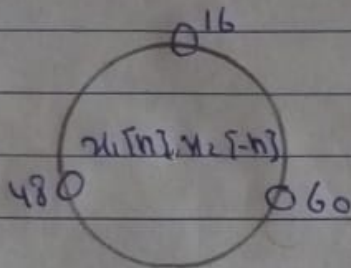 16
x₁[n] x₂[-n]
48
60